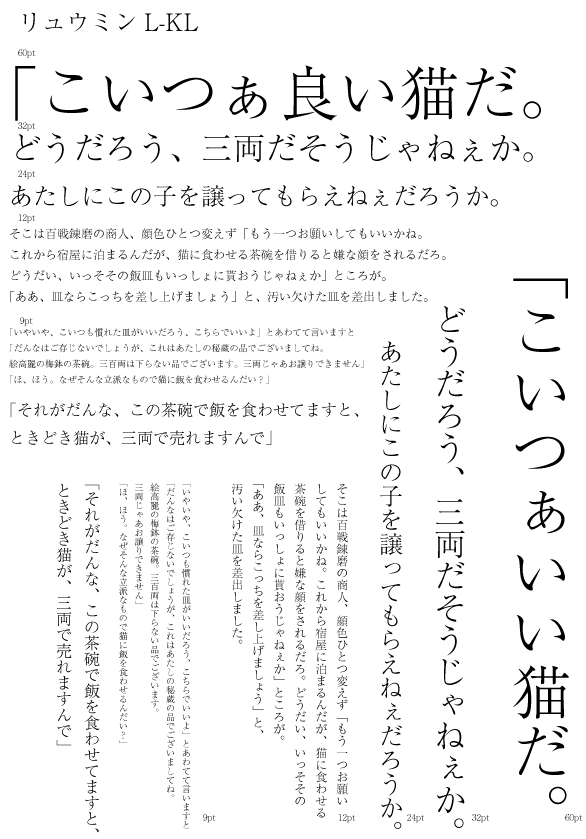 リュウミン L-KL
60pt
「こいつぁ良い猫だ。
32pt
どうだろう、三両だそうじゃねぇか。
24pt
あたしにこの子を譲ってもらえねぇだろうか。
12pt
そこは百戦錬磨の商人、顔色ひとつ変えず「もう一つお願いしてもいいかね。
これから宿屋に泊まるんだが、猫に食わせる茶碗を借りると嫌な顔をされるだろ。
どうだい、いっそその飯皿もいっしょに貰おうじゃねぇか」ところが。
「ああ、皿ならこっちを差し上げましょう」と、汚い欠けた皿を差出しました。
9pt
「いやいや、こいつも慣れた皿がいいだろう、こちらでいいよ」とあわてて言いますと
「だんなはご存じないでしょうが、これはあたしの秘蔵の品でございましてね。
絵高麗の梅鉢の茶碗。三百両は下らない品でございます。三両じゃあお譲りできません」
「ほ、ほう。なぜそんな立派なもので猫に飯を食わせるんだい？」
「それがだんな、この茶碗で飯を食わせてますと、
ときどき猫が、三両で売れますんで」
「こいつぁいい猫だ。
60pt
どうだろう、三両だそうじゃねぇか。
32pt
あたしにこの子を譲ってもらえねぇだろうか。
24pt
そこは百戦錬磨の商人、顔色ひとつ変えず「もう一つお願い
してもいいかね。これから宿屋に泊まるんだが、猫に食わせる
茶碗を借りると嫌な顔をされるだろ。どうだい、いっそその
飯皿もいっしょに貰おうじゃねぇか」ところが。
「ああ、皿ならこっちを差し上げましょう」と、
汚い欠けた皿を差出しました。
12pt
「いやいや、こいつも慣れた皿がいいだろう、こちらでいいよ」とあわてて言いますと
「だんなはご存じないでしょうが、これはあたしの秘蔵の品でございましてね。
絵高麗の梅鉢の茶碗。三百両は下らない品でございます。
三両じゃあお譲りできません」
「ほ、ほう。なぜそんな立派なもので猫に飯を食わせるんだい？」
9pt
「それがだんな、この茶碗で飯を食わせてますと、
ときどき猫が、三両で売れますんで」